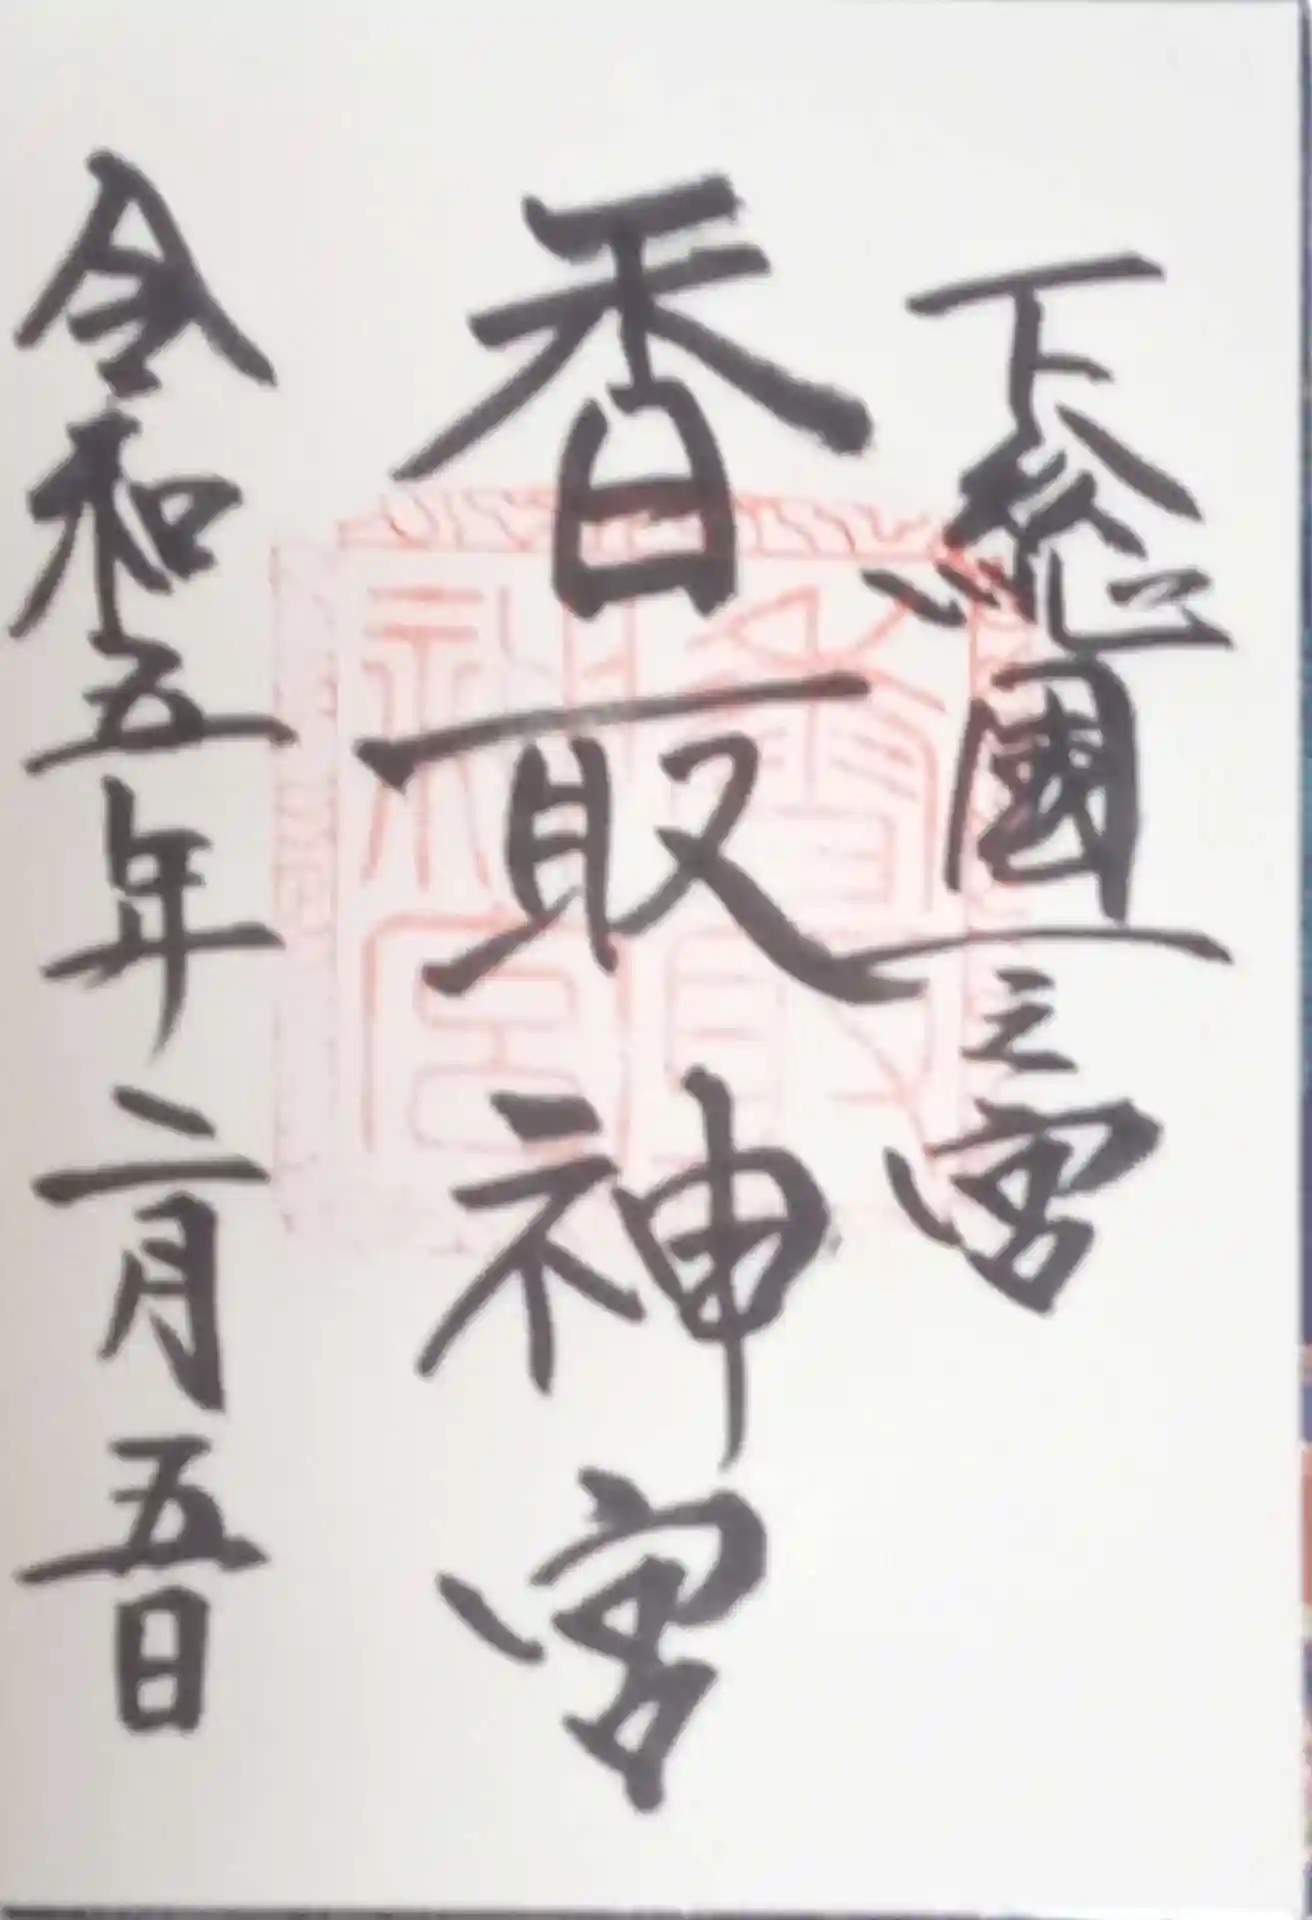 下總國一之宮
香取神宮
令和五年二月五日
香取神宮